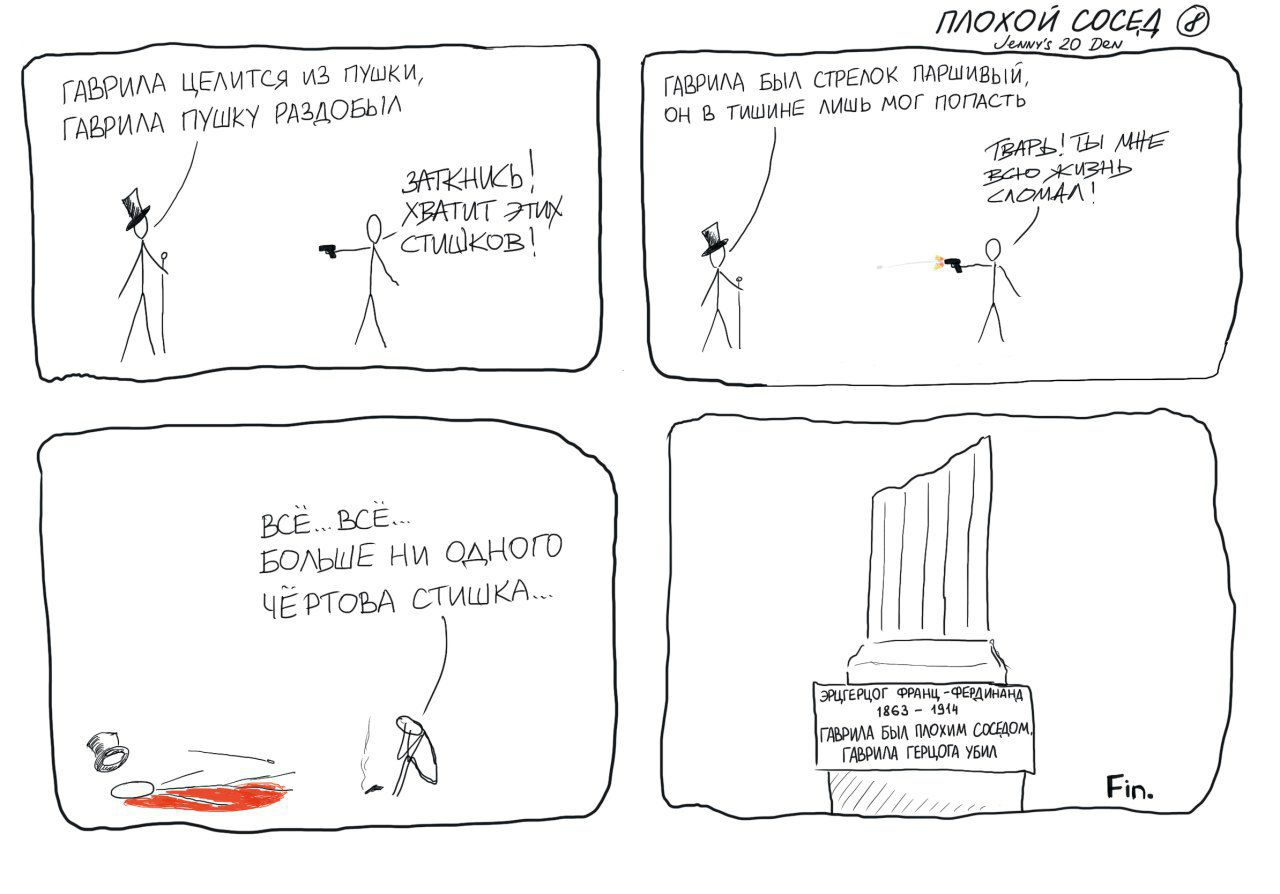 ПЛОХОЙ СОСЕД 8
JENNY'S 20 DEN
ГАВРИЛА ЦЕЛИТСЯ ИЗ ПУШКИ,
ГАВРИЛА ПУШКУ РАЗДОБЫЛ
ЗАТКНИСЬ!
ХВАТИТ ЭТИХ
СТИШКОВ!
ГАВРИЛА БЫЛ СТРЕЛОК ПАРШИВЫЙ,
ОН В ТИШИНЕ ЛИШЬ МОГ ПОПАСТЬ
ТВАРЬ! ТЫ МНЕ
ВСЮ ЖИЗНЬ
СЛОМАЛ!
ВСЁ... ВСЁ...
БОЛЬШЕ НИ ОДНОГО
ЧЁРТОВА СТИШКА...
ЭРЦГЕРЦОГ ФРАНЦ-ФЕРДИНАНД
1863 - 1914
ГАВРИЛА БЫЛ ПЛОХИМ СОСЕДОМ,
ГАВРИЛА ГЕРЦОГА УБИЛ
Fin.